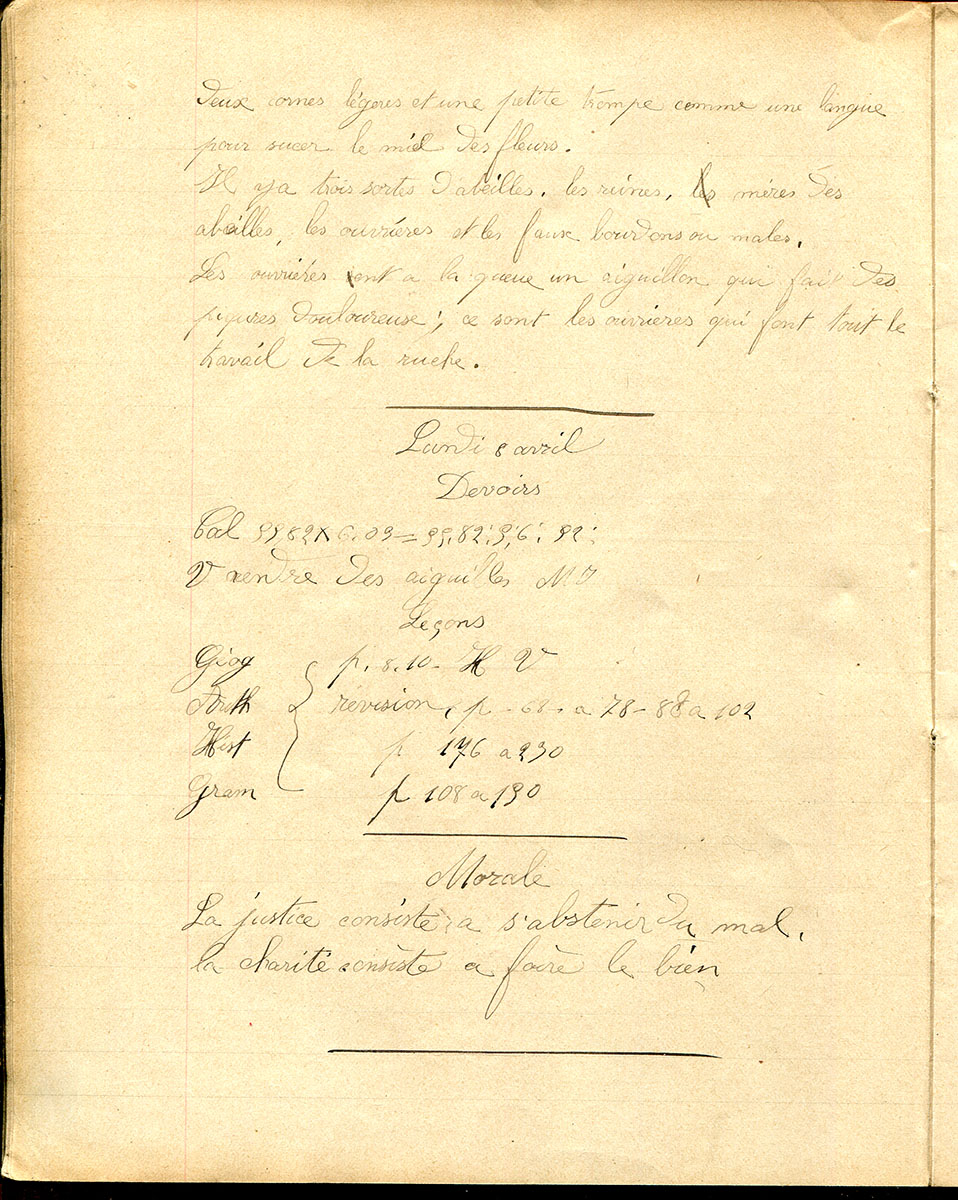 deux cornes légères et une petite trompe comme une langue
pour sucer le miel des fleurs.
Il y a trois sortes d'abeilles. les reines, les mères des
abeilles, les ouvrières et les faux bourdons ou males.
Les ouvrières ont a la queue un aiguillon qui fait des
piqures douloureuse; ce sont les ouvrieres qui font tout le
travail de la ruche.
Lundi 8 avril
Devoirs
Cal 9982 x 6.09 =
V rendre des aiguilles
Leçons
Géog p. 8. 10 - H V
Arith révision, p - 68 - a 78 - 88 a 102
Hist p 176 a 230
Gram p 108 a 190
Morale
La justice consiste a s'abstenir du mal,
la charité consiste a faire le bien